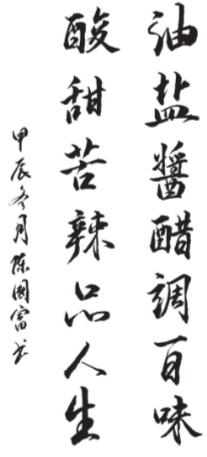 油盐醬醋調百味
酸甜苦辣品人生
甲辰冬月陈國富书